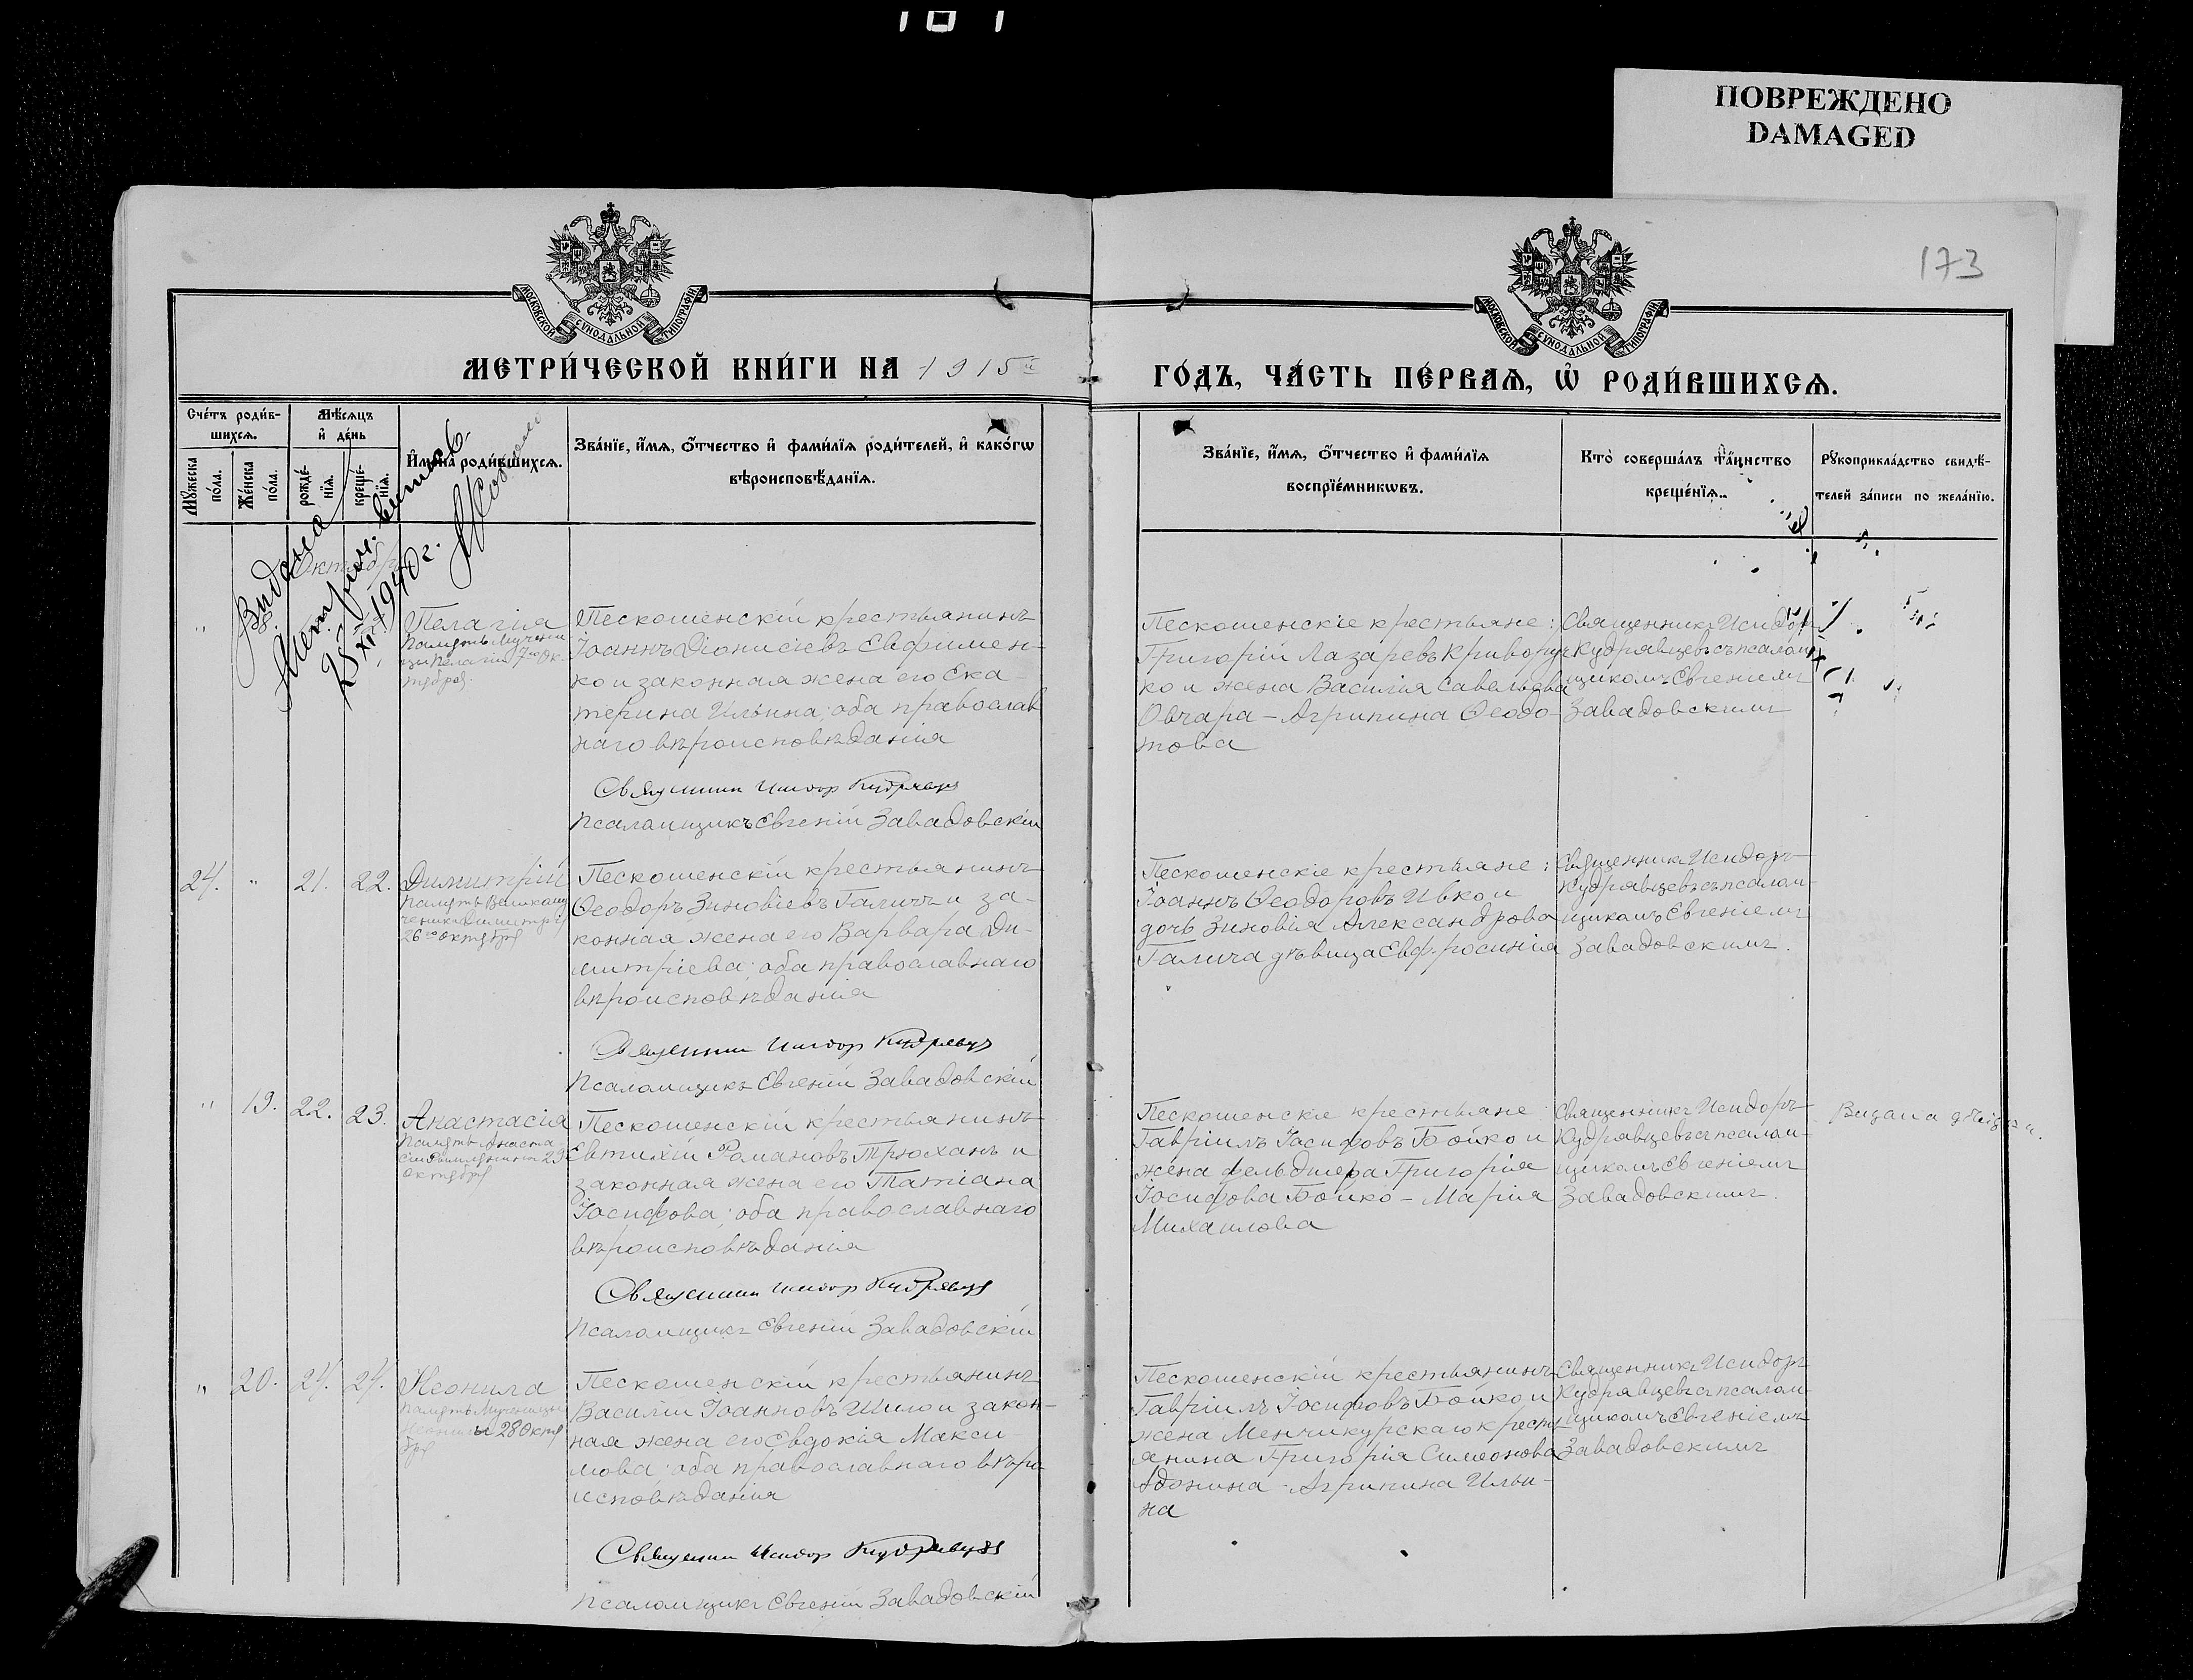 181
ПОВРЕЖДЕНО
DAMAGED
173
МОСКОВСКОЙ СѴНОДАЛЬНОЙ ТИПОГРАФІИ
МОСКОВСКОЙ СѴНОДАЛЬНОЙ ТИПОГРАФІИ
МЕТРИ́ЧЕСКОЙ КНИ́ГИ НА 1915й
ГО́ДЪ, ЧА́СТЬ ПЕ́РВАѦ, Ѡ҆ РОДИ́ВШИХСѦ.
Сче́тъ роди́в-
шихсѧ.
Мꙋ́жеска
по́ла.
Же́нска
по́ла.
Мѣ́сѧцъ
и҆ де́нь
рожде́-
нїѧ.
креще́-
нїѧ.
И҆мена̀ роди́вшихсѧ.
Зва́нїе, и҆́мѧ, ѻ҆́тчество и҆ фами́лїѧ роди́телей, и҆ како́гѡ
вѣроисповѣ́данїѧ.
Зва́нїе, и҆́мѧ, ѻ҆́тчество и҆ фами́лїѧ
воспрїе́мникѡвъ.
Кто̀ соверша́лъ та́инство
креще́нїѧ.
Рꙋкоприкла́дство свидѣ́-
телей за́писи по жела́нїю.
Видана
Метрич. витяг
28 XI 1940 г.
Октябрь
"
Пелагія
Память Мучени
цы Пелагіи 7го Ок-
тября.
Пескошенскій крестьянинъ
Іоаннъ Діонисіевъ Евфимен-
ко и законная жена его Ека-
терина Ильина; оба православ
наго вѣроисповѣданія
Священник Исидор Кудрявцев
Псаломщикъ Евгеній Завадовскій
Пескошенскіе крестьяне:
Григорій Лазаревъ Криворуч
ко и жена Василія Савельева
Овчара - Агрипина Ѳеодо-
това
Священникъ Исидоръ
Кудрявцевъ съ псалом
щикомъ Евгеніемъ
Завадовскимъ
24. " 21. 22.
Димитрій
Память Великому
ченика Димитрія
26го октября
Пескошенскій крестьянинъ
Ѳеодоръ Зиновіевъ Галичъ и за-
конная жена его Варвара Ди-
митріева; оба православнаго
вѣроисповѣданія
Священник Исидор Кудрявцев
Псаломщикъ Евгеній Завадовскій
Пескошенскіе крестьяне:
Іоаннъ Ѳеодоровъ Ивко и
дочь Зиновія Александрова
Галича дѣвица Евфросинія
Священникъ Исидоръ
Кудрявцевъ съ псалом-
щикомъ Евгеніемъ
Завадовскимъ.
" 19. 22. 23.
Анастасія
Память Анаста-
сіи Римлянини 29
октября
Пескошенскій крестьянинъ
Евтихій Романовъ Трюханъ и
законная жена его Татіана
Іосифова; оба православнаго
вѣроисповѣданія
Священник Исидор Кудрявцев
Псаломщикъ Евгеній Завадовскій
Пескошенскіе крестьяне
Гавріилъ Іосифовъ Бойко и
жена фельдшера Григорія
Іосифова Бойко - Марія
Михаилова
Священникъ Исидоръ
Кудрявцевъ съ псалом-
щикомъ Евгеніемъ
Завадовскимъ.
Видана
" 20. 24. 24.
Неонила
Память Мученицы
Неонилы 28 Октя
бря
Пескошенскій крестьянинъ
Василій Іоанновъ Шило и закон-
ная жена его Евдокія Макси-
мова; оба православнаго вѣро
исповѣданія
Священник Исидор Кудрявцев
Псаломщикъ Евгеній Завадовскій
Пескошенскій крестьянинъ
Гавріилъ Іосифовъ Бойко и
жена Менчикурскаго кресть
янина Григорія Симеонова
Адонина - Агрипина Ильи-
на
Священникъ Исидоръ
Кудрявцевъ съ псалом-
щикомъ Евгеніемъ
Завадовскимъ